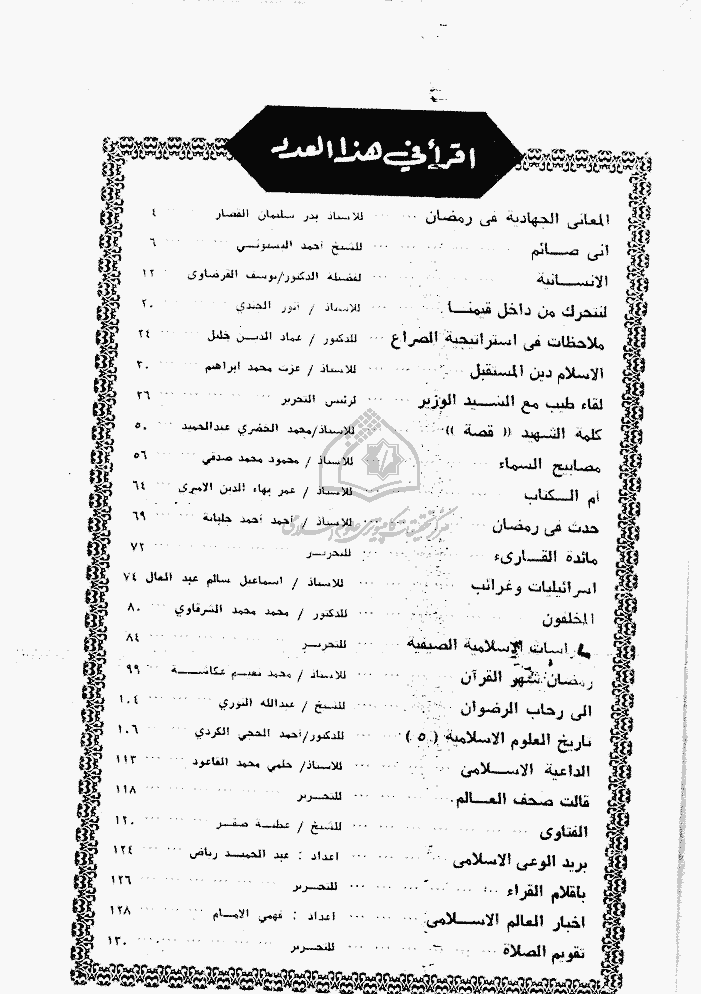 اقرأ في هذا العدد
المعاني الجهادية في رمضان ... للاستاذ بدر سليمان القصار ... ٤
اني صـــائم ... للشيخ أحمد البسيوني ... ٦
الانســـانية ... لفضيلة الدكتور/يوسف القرضاوي ... ١٢
لنتحرك من داخل قيمنـــا ... للاستاذ / أنور الجندي ... ٢٠
ملاحظات في استراتيجية الصراع ... للدكتور / عماد الديـن خليل ... ٢٤
الاسلام دين المستقبل ... للاستاذ / عزت محمد ابراهيم ... ٣٠
لقاء طيب مع السـيد الوزير ... لرئيس التحرير ... ٣٦
كلمة الشهيد (( قصة )) ... للاستاذ/محمد الخضري عبدالحميد ... ٥٠
مصابيح السماء ... للاستاذ / محمود محمد صدقي ... ٥٦
أم الـــكتاب ... للاستاذ / عمر بهاء الدين الاميري ... ٦٤
حدث في رمضان ... للاستاذ / أحمد أحمد جلباية ... ٦٩
مائدة القـــارىء ... للتحريـــر ... ٧٢
اسرائيليات وغرائب ... للاستاذ / اسماعيل سالم عبد العال ٧٤
المخلفون ... للدكتور / محمد محمد الشرقاوي ... ٨٠
دراسات الاسلامية الصيفية ... للتحريـــر ... ٨٤
رمضان شهر القرآن ... للاستاذ / محمد نعيـم عكاشـــة ... ٩٩
الى رحاب الرضوان ... للشيخ / عبدالله النوري ... ١٠٤
تاريخ العلوم الاسلامية ( ٥ ) ... للدكتور/أحمد الحجي الكردي ... ١٠٦
الداعية الاســـلامي ... للاستاذ/ حلمي محمد القاعود ... ١١٣
قالت صحف العـــالم ... للتحـــرير ... ١١٨
الفتاوى ... للشيخ / عطيـــة صقـــر ... ١٢٠
بريد الوعي الاسلامي ... اعداد : عبد الحميـد رياض ... ١٢٤
باقلام القراء ... للتحـــرير ... ١٢٦
اخبار العالم الاســـلامي ... اعداد : فهمي الامـــام ... ١٢٨
تقويم الصلاة ... للتحـــرير ... ١٣٠